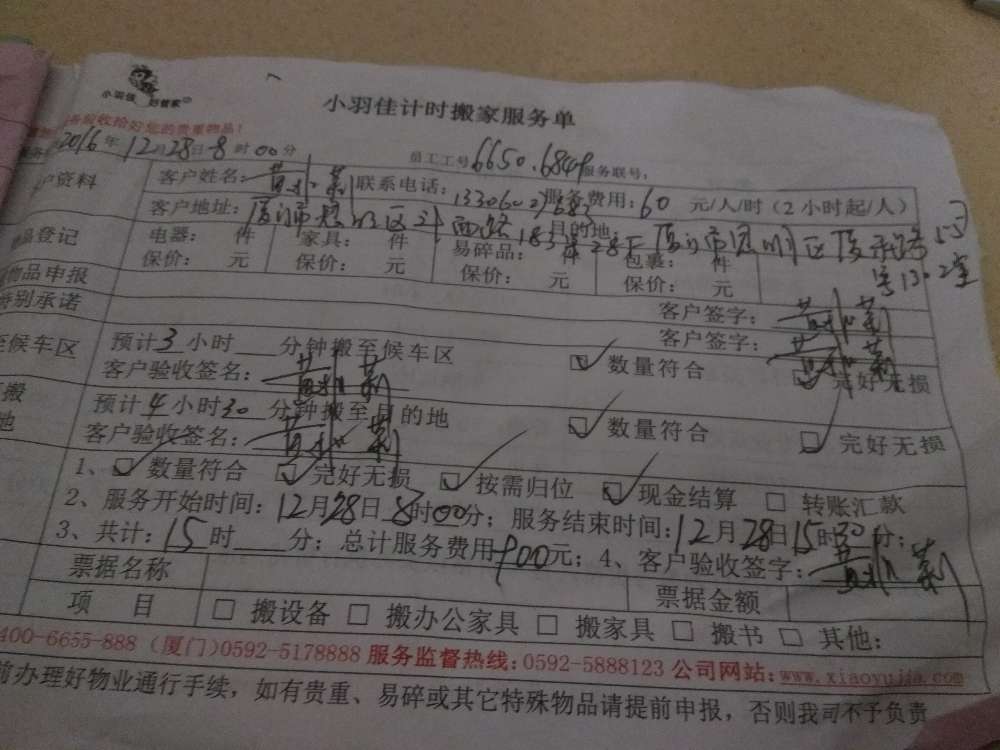 小羽佳 好管家
小羽佳计时搬家服务单
务必收拾好您的贵重物品!
2016年12月28日8时00分 员工工号6650.6849 服务联号:
户资料 客户姓名: 联系电话: 服务费用:60 元/人/时(2小时起/人)
客户地址:厦门市 区 西路183 28F 目的地:厦门市思明区厦禾路
号1302室
品登记 电器: 件 家具: 件 易碎品: 件 包裹: 件
保价: 元 保价: 元 保价: 元 保价: 元
物品申报 客户签字:
特别承诺 客户签字:
至候车区 预计3小时 分钟搬至候车区 ☑ 数量符合 ☑ 完好无损
客户验收签名:
搬 预计4小时30分钟搬至目的地 ☑ 数量符合 ☑ 完好无损
地 客户验收签名:
1、☑ 数量符合 ☑ 完好无损 ☑ 按需归位 ☑ 现金结算 □ 转账汇款
2、服务开始时间:12月28日8时00分;服务结束时间:12月28日15时30分;
3、共计:15时 分;总计服务费用900元;4、客户验收签字:
票据名称 票据金额
项 目 □ 搬设备 □ 搬办公家具 □ 搬家具 □ 搬书 □ 其他:
400-6655-888 (厦门)0592-5178888 服务监督热线:0592-5888123 公司网站:www.xiaoyujia.com
前办理好物业通行手续,如有贵重、易碎或其它特殊物品请提前申报,否则我司不予负责